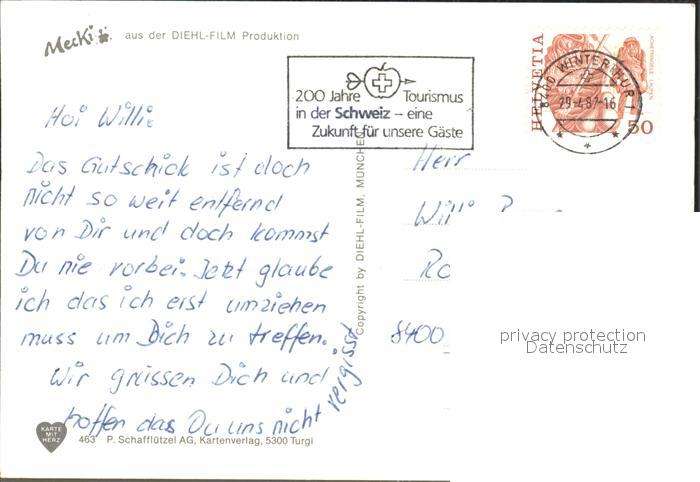 Mecki aus der DIEHL-FILM Produktion
200 Jahre Tourismus
in der Schweiz – eine
Zukunft für unsere Gäste
HELVETIA
50
8400 WINTERTHUR 1
29-4.87-16
Hoi Willi
Das Gutschick ist doch
nicht so weit entfernd
von Dir und doch kommst
Du nie vorbei. Jetzt glaube
ich das ich erst umziehen
muss um Dich zu treffen.
Wir grüssen Dich und
hoffen das Du uns nicht
vergisst
Copyright by DIEHL-FILM, MÜNCHEN
Herr
Willi
8400
privacy protection
Datenschutz
KARTE
MIT
HERZ
463 P. Schafflützel AG, Kartenverlag, 5300 Turgi